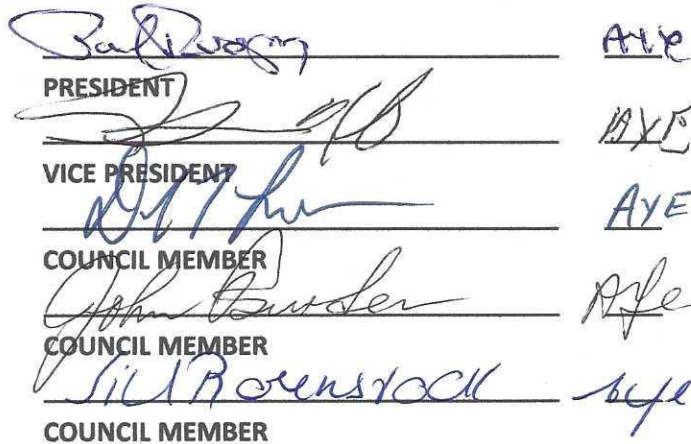 Aye
PRESIDENT
AYE
VICE PRESIDENT
AYE
COUNCIL MEMBER
John Burden Aye
COUNCIL MEMBER
Jill Rosenstock Aye
COUNCIL MEMBER